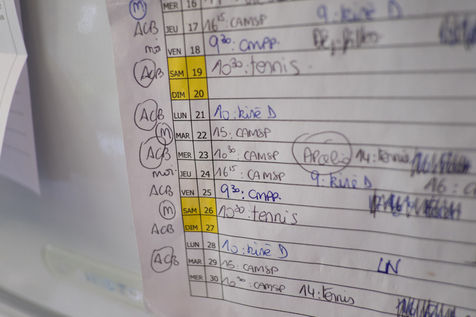 M MER 16
ACB JEU 17 16 15 : CAMSP 9 : Kiné D
moi VEN 18 9 30 : CMPP.
ACB SAM 19 10 30 : tennis.
DIM 20
ACB LUN 21 10 : Kiné D
M MAR 22 15 : CAMSP
ACB MER 23 10 30 : CAMSP 14 : tennis
moi JEU 24 16 15 : CAMSP 9 : Kiné D 16 :
ACB VEN 25 9 30 : CMPP.
M SAM 26 10 30 : tennis
ACB DIM 27
LUN 28 10 : Kiné D
ACB MAR 29 15 : CAMSP LN
MER 30 10 30 : CAMSP 14 : tennis